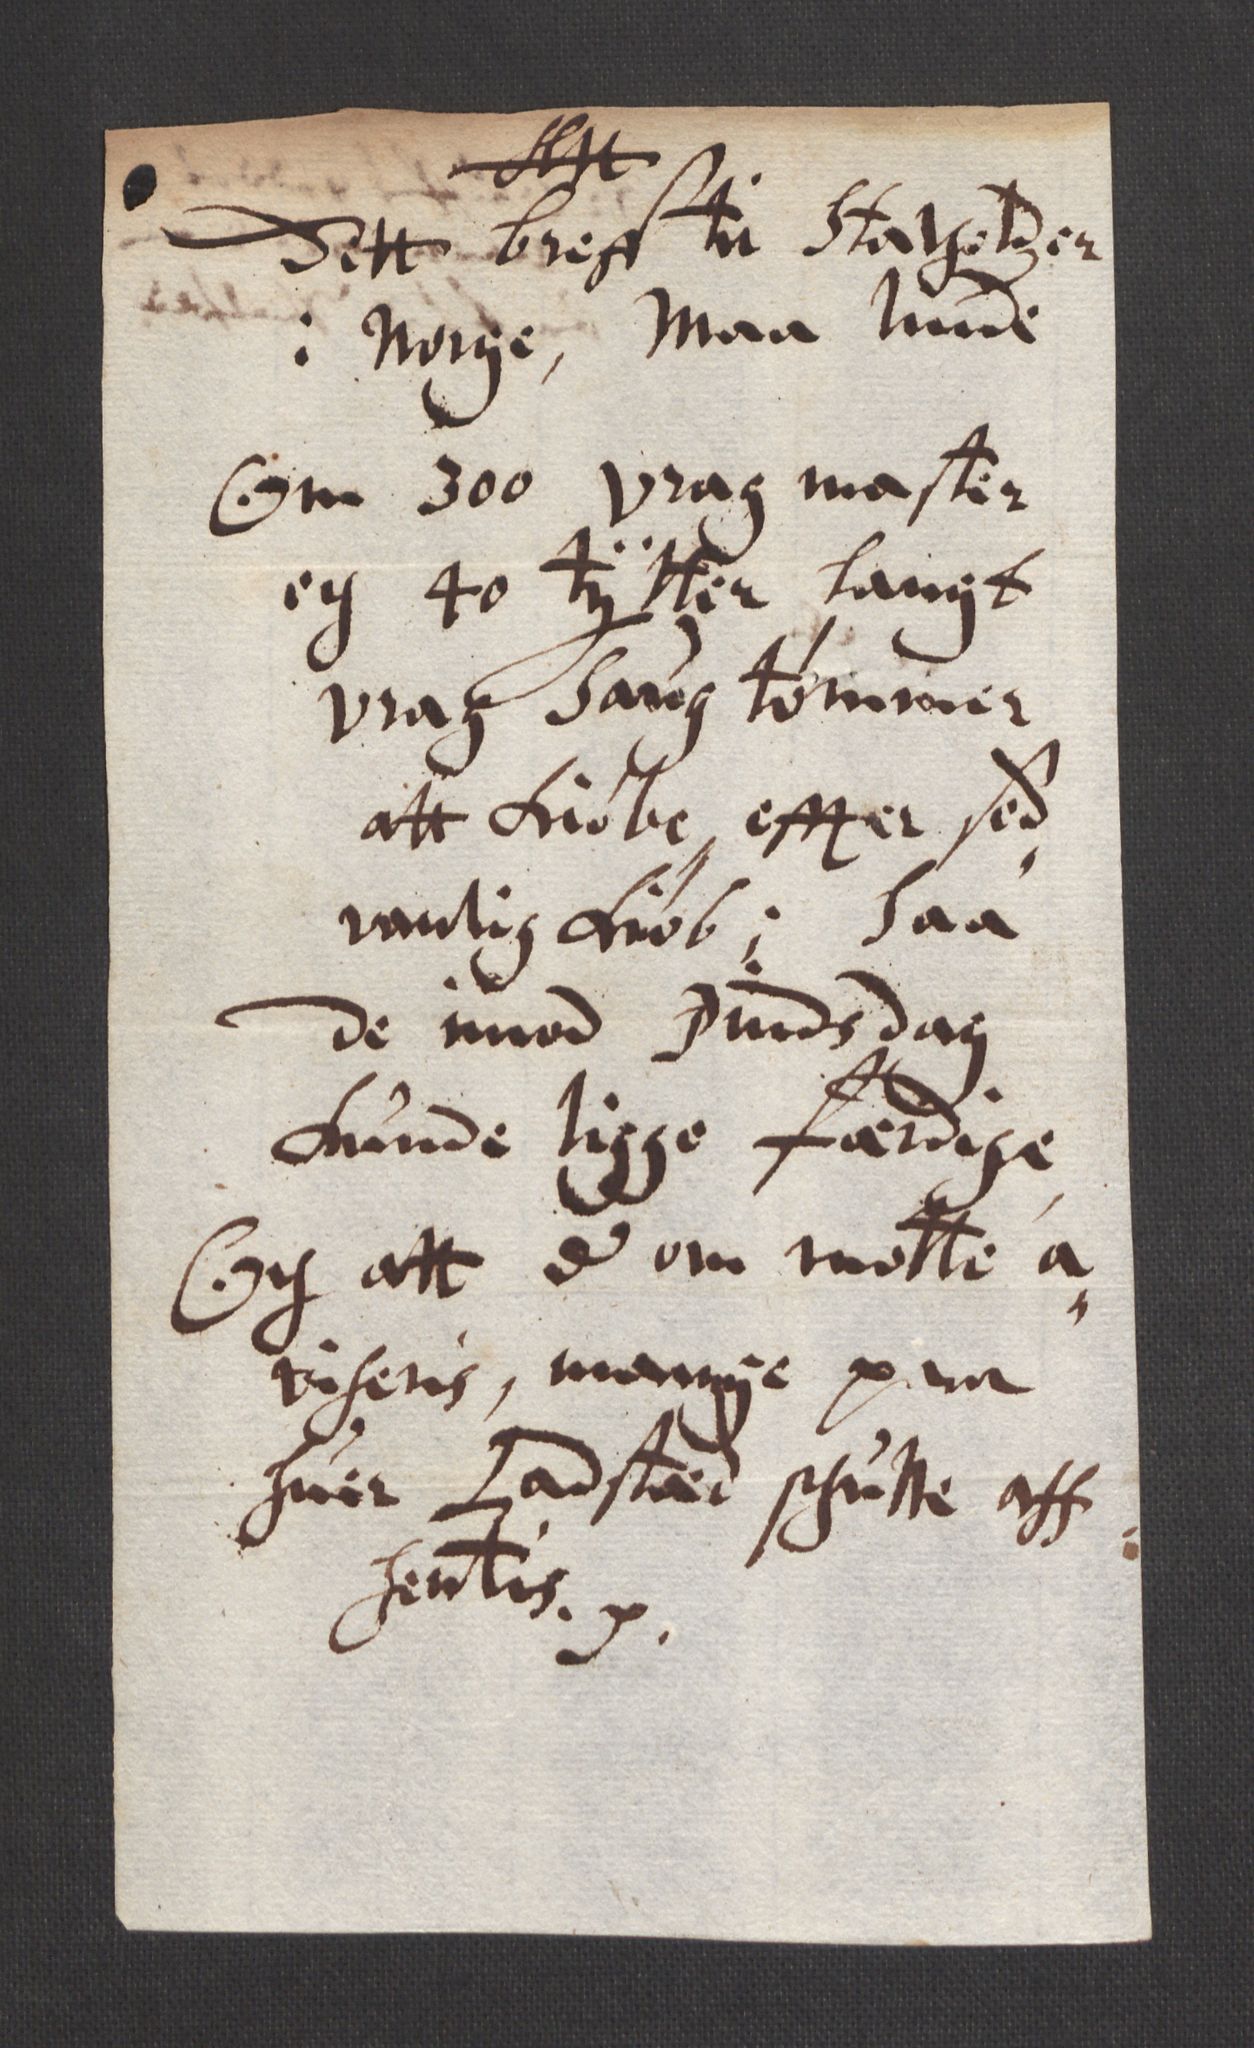 Att
Dett breff til Statholder
i Norge, Maa liude
Om 300 vrag master
og 40 tÿlter langt
vrag Saug tömmer
att kiöbe, effter sed
vanlig kiöb; Saa
de imod Pindsdag
kunde ligge færdige,
Og att d om motte a
viseris, mange paa
huer Ladsted schulle aff
hentis.